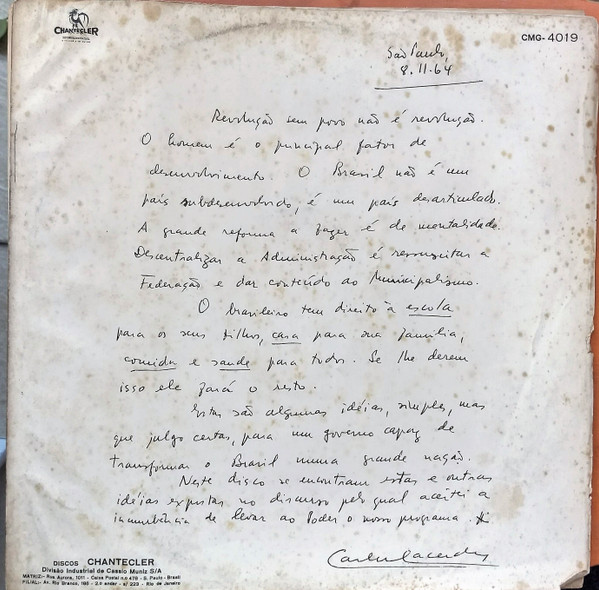 CHANTECLER
CMG-4019
São Paulo,
8.11.64
Revolução sem povo não é revolução.
O homem é o principal fator de
desenvolvimento. O Brasil não é um
país subdesenvolvido, é um país desarticulado.
A grande reforma a fazer é de mentalidade.
Descentralizar a Administração é ressuscitar a
Federação e dar conteúdo ao Municipalismo.
O brasileiro tem direito à escola
para os seus filhos, casa para sua família,
comida e saude para todos. Se lhe derem
isso ele fará o resto.
Estas são algumas idéias, simples, mas
que julgo certas, para um governo capaz de
transformar o Brasil numa grande nação.
Neste disco se encontram estas e outras
idéias expostas no discurso pelo qual aceitei a
incumbência de levar ao Poder o nosso programa.
Carlos Lacerda
DISCOS CHANTECLER
Divisão Industrial de Cassio Muniz S/A
MATRIZ:- Rua Aurora, 1011 - Caixa Postal n.o 479 - S. Paulo - Brasil
FILIAL:- Av. Rio Branco, 185 - 2.o andar - s/ 223 - Rio de Janeiro